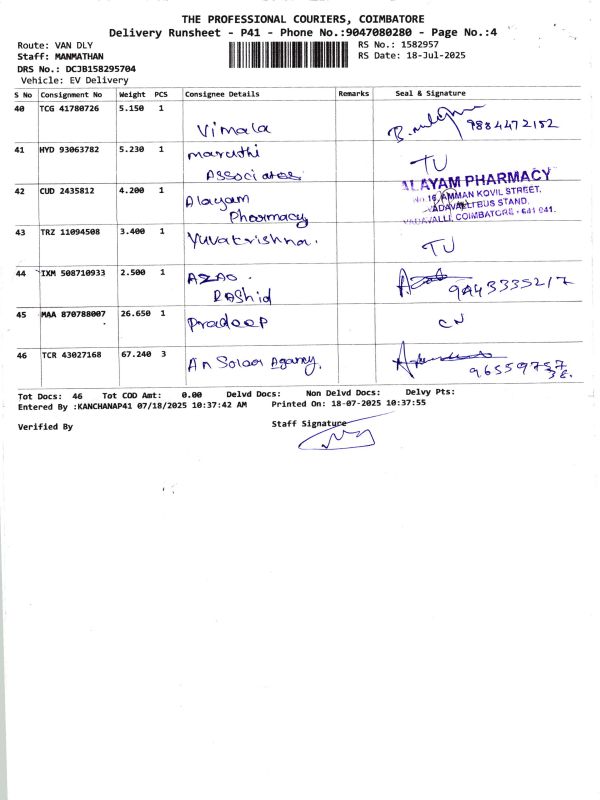 THE PROFESSIONAL COURIERS, COIMBATORE
Delivery Runsheet - P41 - Phone No.:9047080280 - Page No.:4
Route: VAN DLY
RS No.: 1582957
Staff: MANMATHAN
RS Date: 18-Jul-2025
DRS No.: DCJB158295704
Vehicle: EV Delivery
S No Consignment No Weight PCS Consignee Details Remarks Seal & Signature
40 TCG 41780726 5.150 1 Vimala 9884472152
41 HYD 93063782 5.230 1 maruthi
Associates TU
42 CUD 2435812 4.200 1 Alayam
Pharmacy
ALAYAM PHARMACY
No.16, AMMAN KOVIL STREET,
VADAVALLI BUS STAND,
VADAVALLI, COIMBATORE - 641 041.
43 TRZ 11094508 3.400 1 Yuvakrishna. TU
44 IXM 508710933 2.500 1 AZAD.
RAShid 9443335217
45 MAA 870788007 26.650 1 Pradeep CN
46 TCR 43027168 67.240 3 An Solaar Agancy.
Tot Docs: 46 Tot COD Amt: 0.00 Delvd Docs: Non Delvd Docs: Delvy Pts:
Entered By :KANCHANAP41 07/18/2025 10:37:42 AM Printed On: 18-07-2025 10:37:55
Verified By
Staff Signature